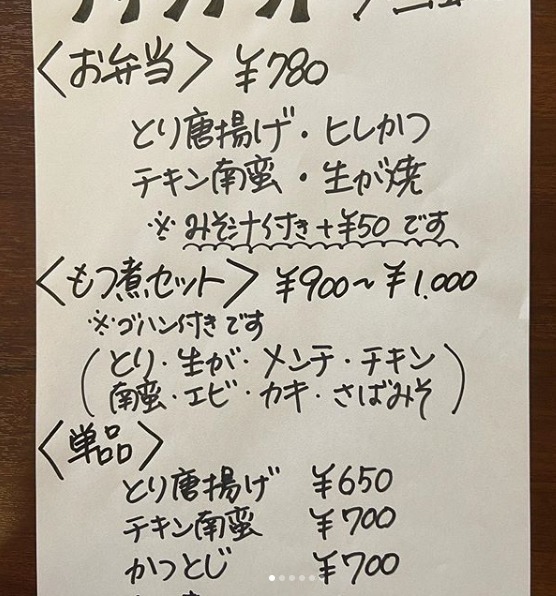 メニュー
〈お弁当〉 ¥780
とり唐揚げ・ヒレかつ
チキン南蛮・生が焼
※みそ汁付き+¥50です
〈もつ煮セット〉 ¥900〜¥1.000
※ゴハン付きです
(とり・生が・メンチ・チキン
南蛮・エビ・カキ・さばみそ)
〈単品〉
とり唐揚げ ¥650
チキン南蛮 ¥700
かつとじ ¥700